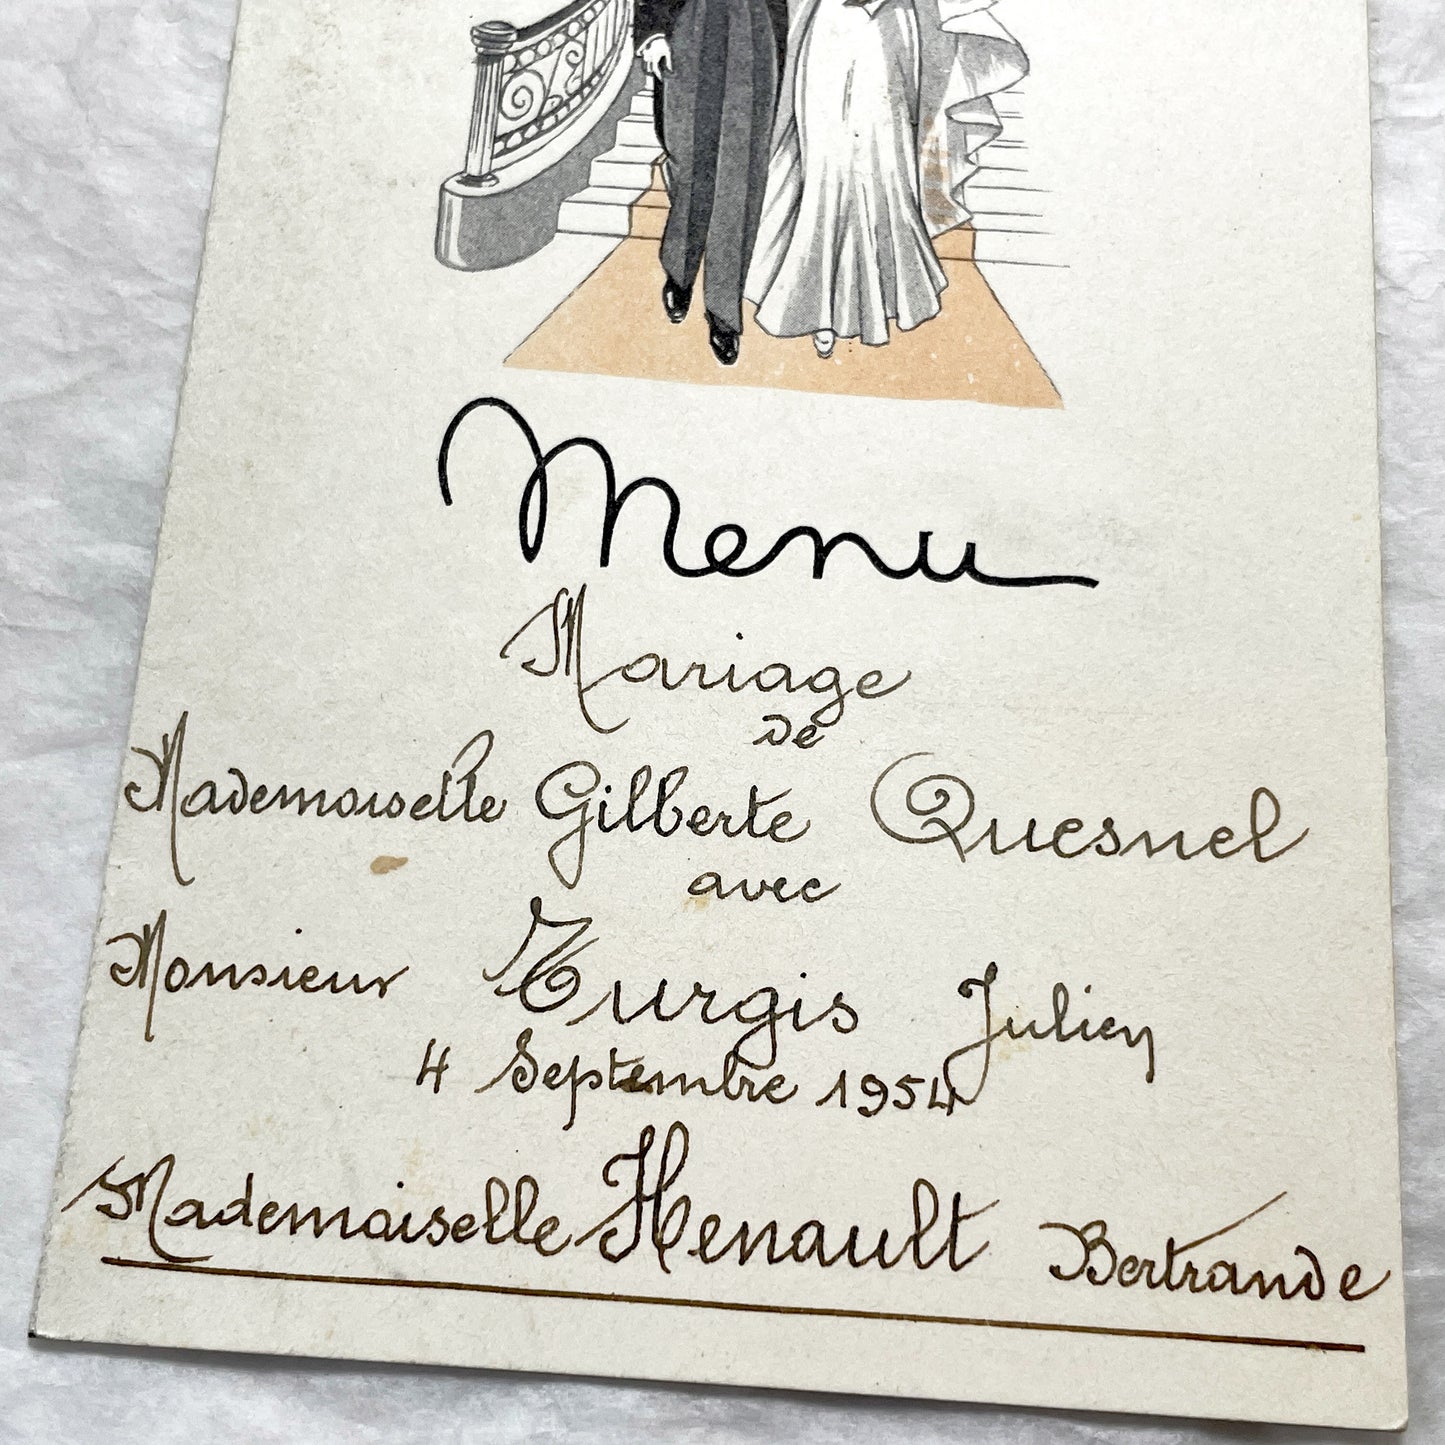 Menu
Mariage
de
Mademoiselle Gilberte Quesnel
avec
Monsieur Turgis Julien
4 Septembre 1954
Mademoiselle Henault Bertrande